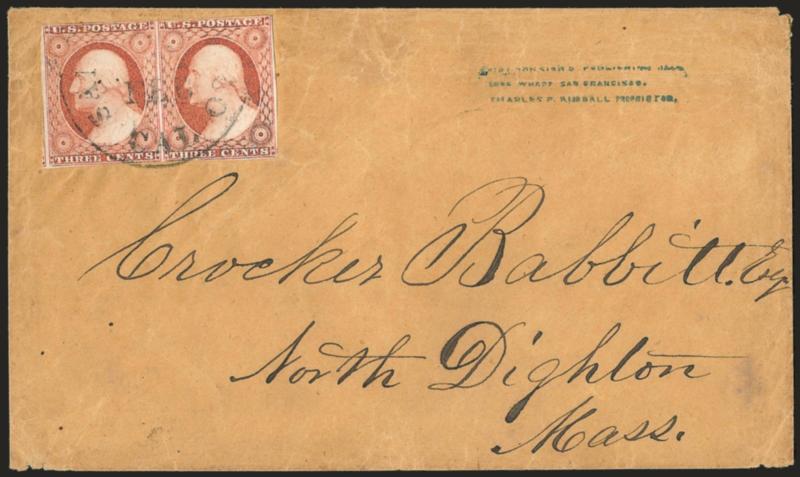 U.S. POSTAGE U.S. POSTAGE
THREE CENTS THREE CENTS
SAN
CAL.
PUBLISHING HALL
LONG WHARF SAN FRANCISCO.
CHARLES P. KIMBALL PROPRIETOR,
Crocker Babbitt. Esq
North Dighton
Mass.